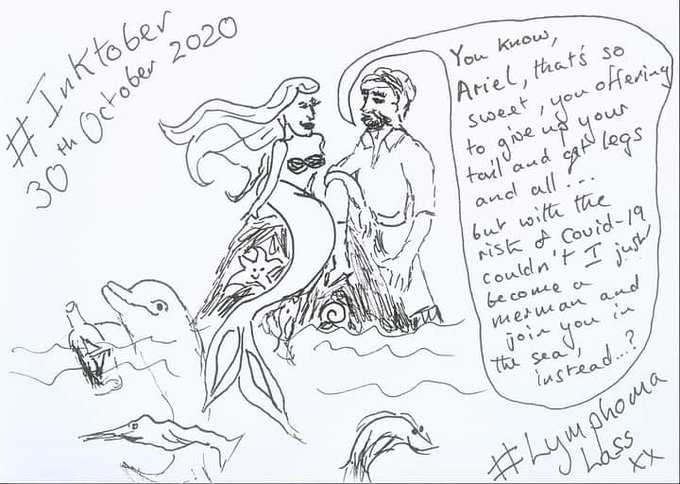 #Inktober
30th October 2020
You know,
Ariel, that's so
sweet, you offering
to give up your
tail and get legs
and all...
but with the
risk of Covid-19
couldn't I just
become a
merman and
join you in
the sea,
instead...?
#Lymphoma
Lass
xx